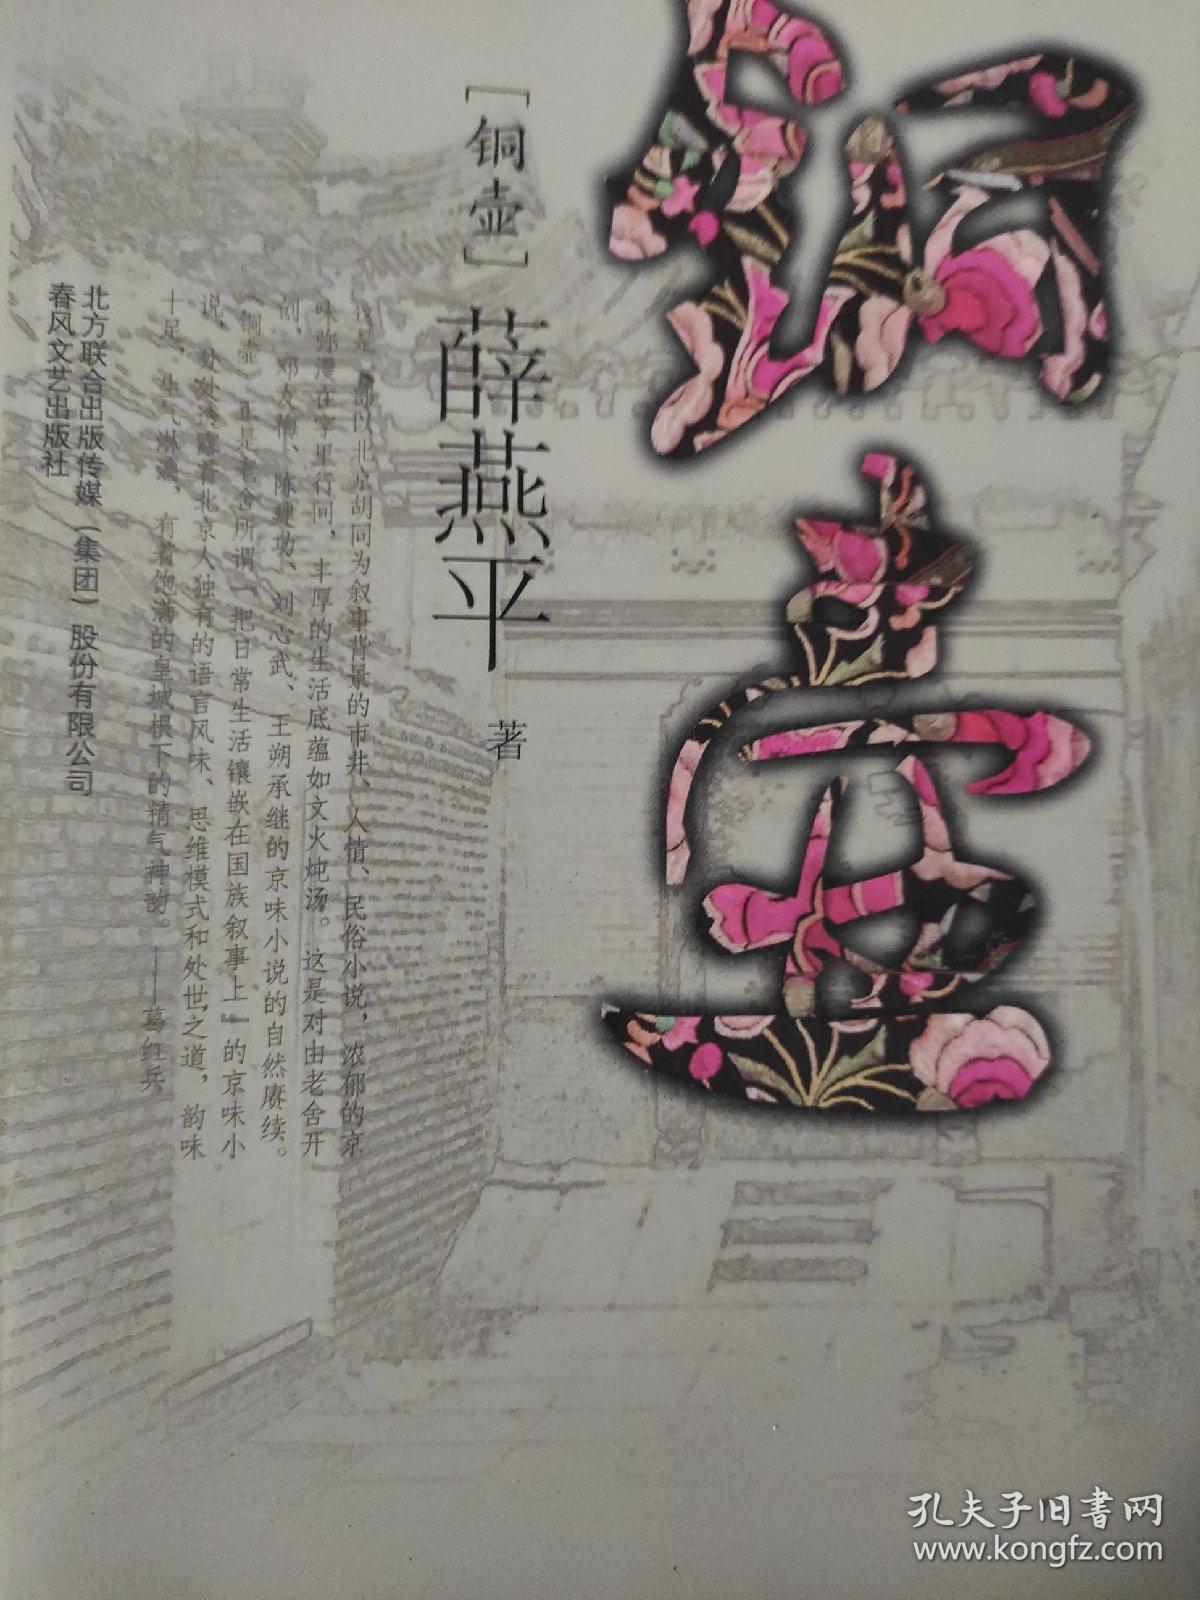 铜壶
[铜壶]
薛燕平
著
这是一部以北京胡同为叙事背景的市井、人情、民俗小说，浓郁的京
味弥漫在字里行间，丰厚的生活底蕴如文火炖汤。这是对由老舍开
创，邓友梅、陈建功、刘心武、王朔承继的京味小说的自然赓续。
《铜壶》正是老舍所谓『把日常生活镶嵌在国族叙事上』的京味小
说，处处诗
着北京人独有的语言风味、思维模式和处世之道，韵味
十足，生气淋漓，有着饱满的皇城根下的精气神韵。——葛红兵
北方联合出版传媒（集团）股份有限公司
春风文艺出版社
孔夫子旧书网
www.kongfz.com